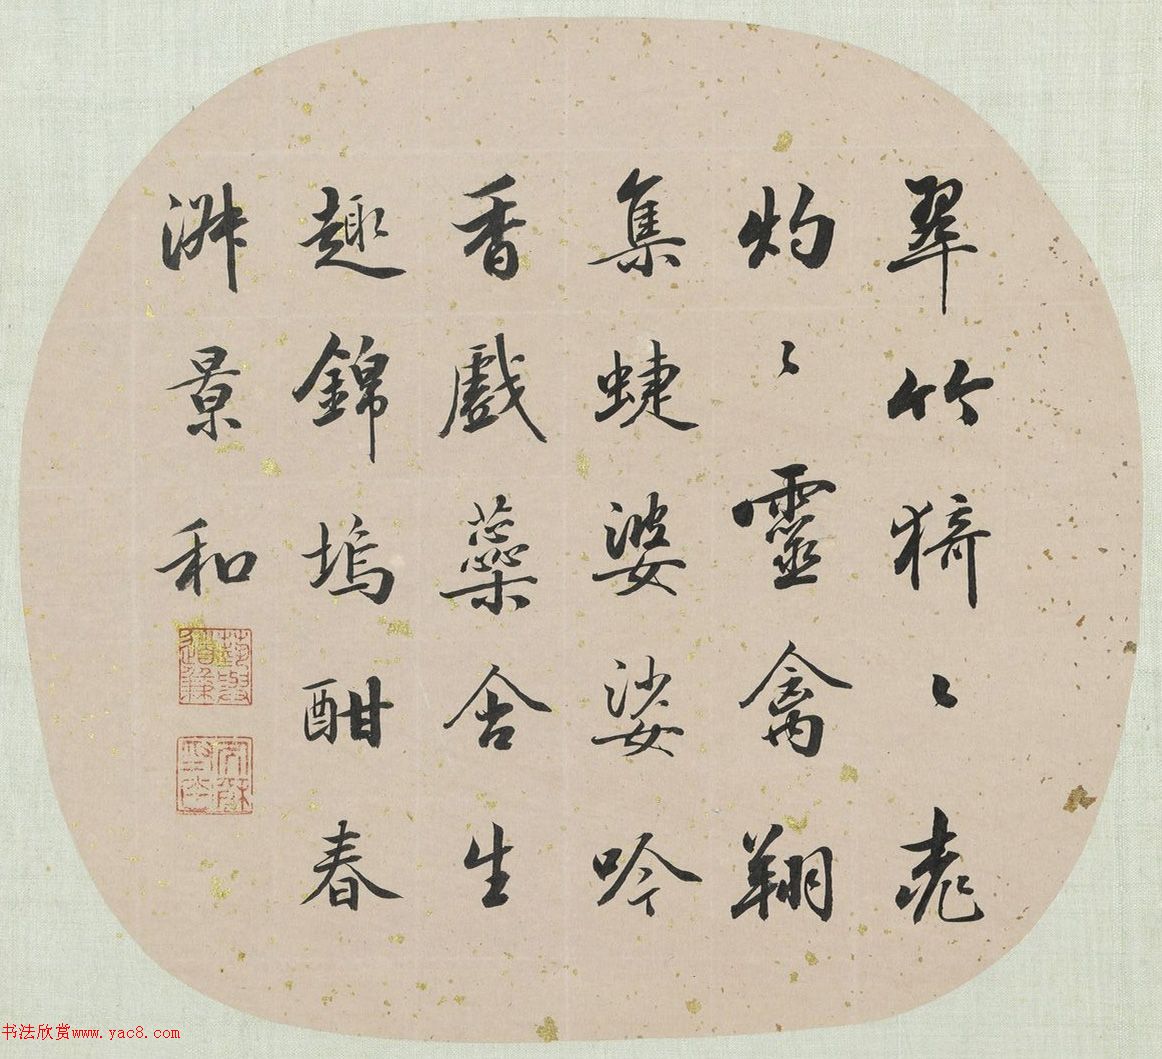 翠竹猗〻桃
灼〻靈禽翔
集蜨婆娑吟
香戲蘂含生
趣錦塢酣春
淑景和
书法欣赏www.yac8.com